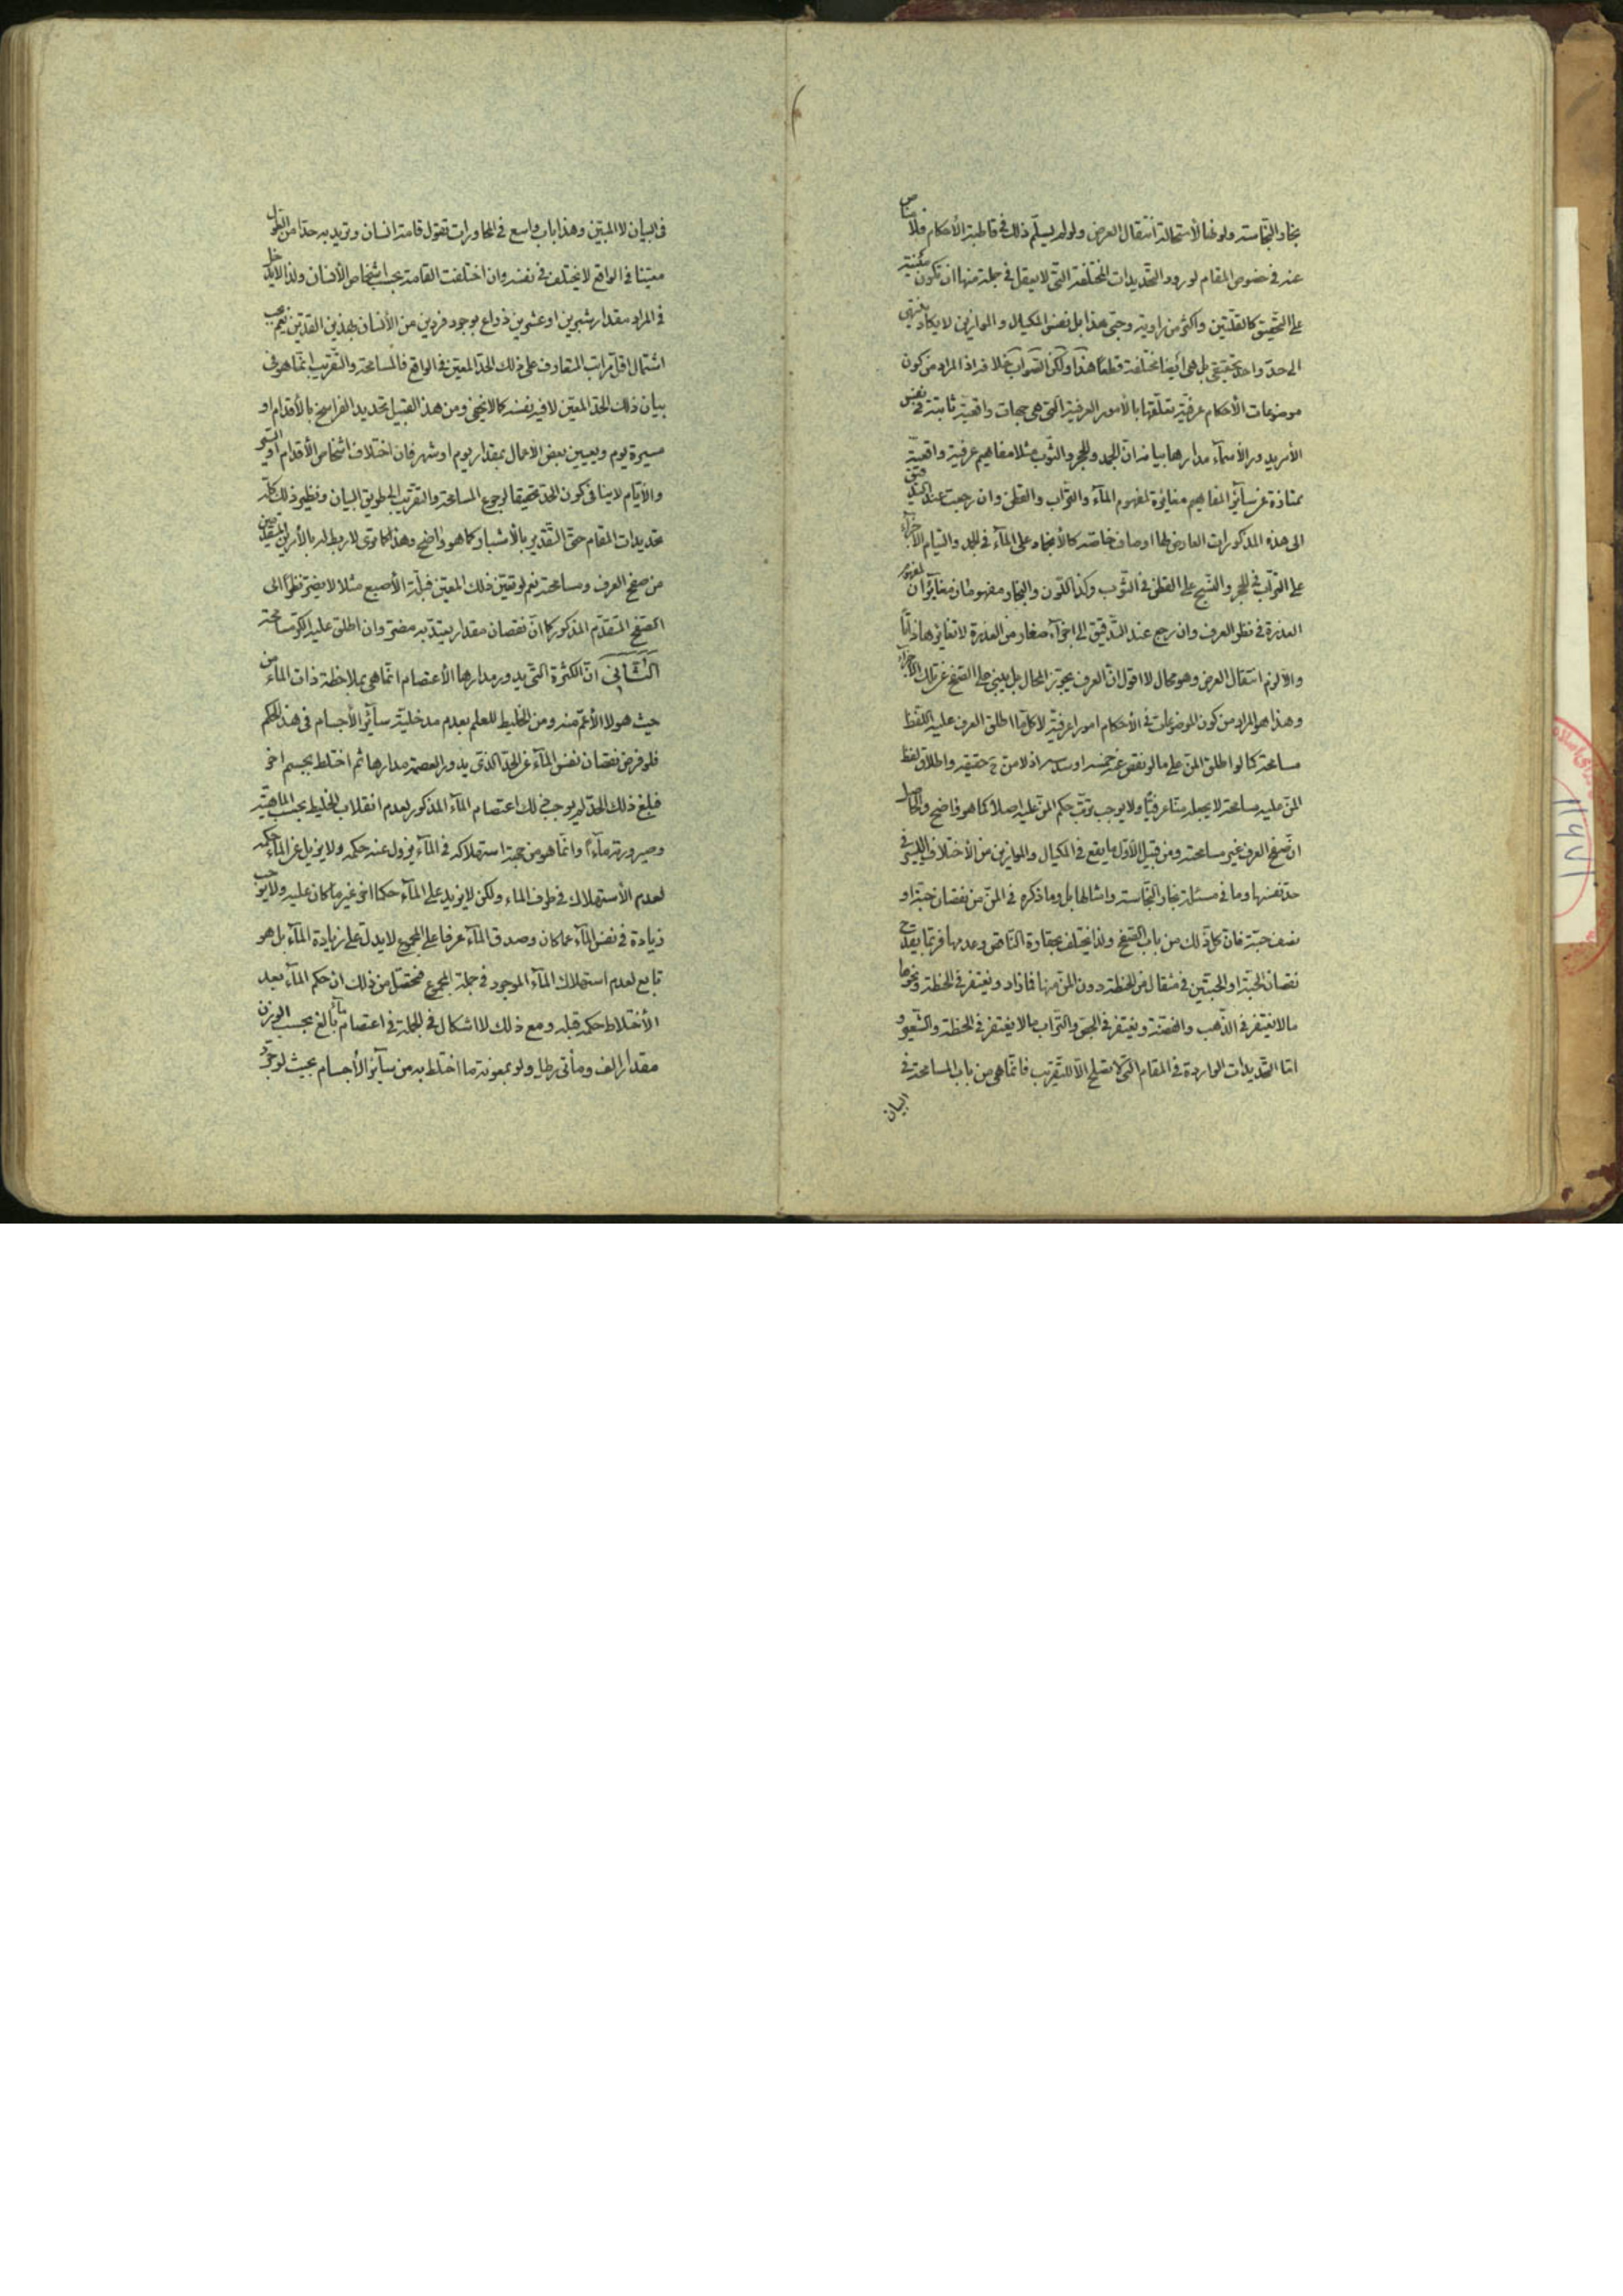 بخار النجاسة ولو لهذا لاستحالة انتقال العرض ولو لم يسلّم ذلك في قاطبة الأحكام فلا مناص
عنه في خصوص المقام لورود التحديدات المختلفة التي لا يعقل في جملة منها ان تكون مبنية
على التحقيق كالقلّتين واكثر من راوية وحتى هذا بل نفس المكيال والموازين لا يكاد ينتهي
الى حدّ واحد حقيقي بل هي أيضا مختلفة قطعا هذا ولكن الصواب خلافه اذ المراد من كون
موضوعات الأحكام عرفيّة تعلّقها بالأمور العرفية التي هي جهات واقعية ثابتة في نفس
الأمر يدور الأسماء مدارها بيانه ان الجمد والحجر والثوب مثلا مفاهيم عرفية واقعية
ممتازة عن سائر المفاهيم مغايرة لمفهوم الماء والتراب والقطن وان رجعت عند التدقيق
الى هذه المذكورات العارض لها اوصاف خاصة كالأنجماد على الماء في الجمد والتيام الأجزاء
على التراب في الحجر والنسج على القطن في الثوب وكذا اللون والبخار مفهومان مغايران لمفهوم
العذرة في نظر العرف وان رجع عند التدقيق الى اجزاء صغار من العذرة لا تغايرها ذاتا
والا لزم انتقال العرض وهو محال لا اقول ان العرف يجوّز المحال بل يبنى على الصفح عن تلك الأجزاء
وهذا هو المراد من كون الموضوعات في الأحكام امورا عرفية لا كلما اطلق العرف عليه اللفظ
مسامحة كما لو اطلق المنّ على ما لو نقص عنه خمسه او سدسه اذ لا منّ ح حقيقه واطلاق لفظ
المنّ عليه مسامحة لا يجعله منّا عرفيّا ولا يوجب ترتّب حكم المنّ عليه اصلا كما هو واضح والحاصل
ان صفح العرف غير مسامحته ومن قبيل الأول ما يقع في المكيال والموازين من الأختلاف اليسير في
حد نفسها وما في مسئلة بخار النجاسة وامثالها بل وما ذكره في المنّ من نقصان حبّة او
نصف حبّة فان كل ذلك من باب الصفح ولذا يختلف بحقارة الناقص وعدمها فربّما يقدح
نقصان الحبّة او الحبتين في مثقال من الحنطة دون المنّ منها فما زاد ويغتفر في الحنطة ونحوها
ما لا يغتفر في الذّهب والفضّة ويغتفر في الجصّ والتراب ما لا يغتفر في الحنطة والشعير و
امّا التحديدات الواردة في المقام التي لا تصلح الا للتقريب فانما هي من باب المسامحة في
البيان
في البيان لا المبيّن وهذا باب واسع في المحاورات تقول قامة انسان وتريد به حدّا من الطول
معيّنا في الواقع لا يختلف في نفسه وان اختلفت القامة بحسب اشخاص الأنسان ولذا لا يدخل
في المراد مقدار شبرين او عشرين ذراع بوجود فردين من الأنسان بهذين القدرين نعم يجب
اشتمال اقل مراتب المتعارف على ذلك الحدّ المعيّن في الواقع فالمسامحة والتقريب انّما هو في
بيان ذلك الحدّ المعيّن لا فيه نفسه كما لا يخفى ومن هذا القبيل تحديد الفراسخ بالأقدام او
مسيرة يوم وتعيين بعض الأعمال بمقدار يوم او شهر فان اختلاف اشخاص الأقدام او السير
والأيّام لا ينافي كون الحدّ تحقيقا لرجوع المسامحة والتقريب الى طريق البيان ونظير ذلك كلّه
تحديدات المقام حتى التقدير بالأشبار كما هو واضح وهذا كما ترى لا ربط له بالأمرين المتقدمين
من صفح العرف ومسامحته نعم لو تعيّن ذلك المعيّن فبلّة الأصبع مثلا لا يضرّ نظرا الى
الصفح المتقدّم المذكور كما ان نقصان مقدار يعتدّ به مضرّ وان اطلق عليه الكرّ مسامحة
الثّاني انّ الكثرة التي يدور مدارها الأعتصام انّما هي بملاحظة ذات الماء من
حيث هو لا الأعمّ منه ومن الخليط للعلم بعدم مدخلية سائر الأجسام في هذا الحكم
فلو فرض نقصان نفس الماء عن الحدّ الذي يدور العصمة مدارها ثم اختلط بجسم اخر
فبلغ ذلك الحدّ لم يوجب ذلك اعتصام الماء المذكور لعدم انقلاب الخليط بحسب الماهيّة
وصيرورته ماءً وانّما هو من جهة استهلاكه في الماء يزول عنه حكمه ولا يزيل عن الماء حكمه
لعدم الأستهلاك في طرف الماء ولكن لا يزيد على الماء حكما اخر غير ما كان عليه ولا يوجب
زيادة في نفس الماء عما كان وصدق الماء عرفا على المجموع لا يدل على زيادة الماء بل هو
تابع لعدم استهلاك الماء الموجود في جملة المجموع فتحصّل من ذلك ان حكم الماء بعد
الأختلاط حكمه قبله ومع ذلك لا اشكال في الجملة في اعتصام ماء بالغ بحسب الوزن
مقدار الف ومأتي رطل ولو بمعونة ما اختلط به من سائر الأجسام بحيث لو جرّد